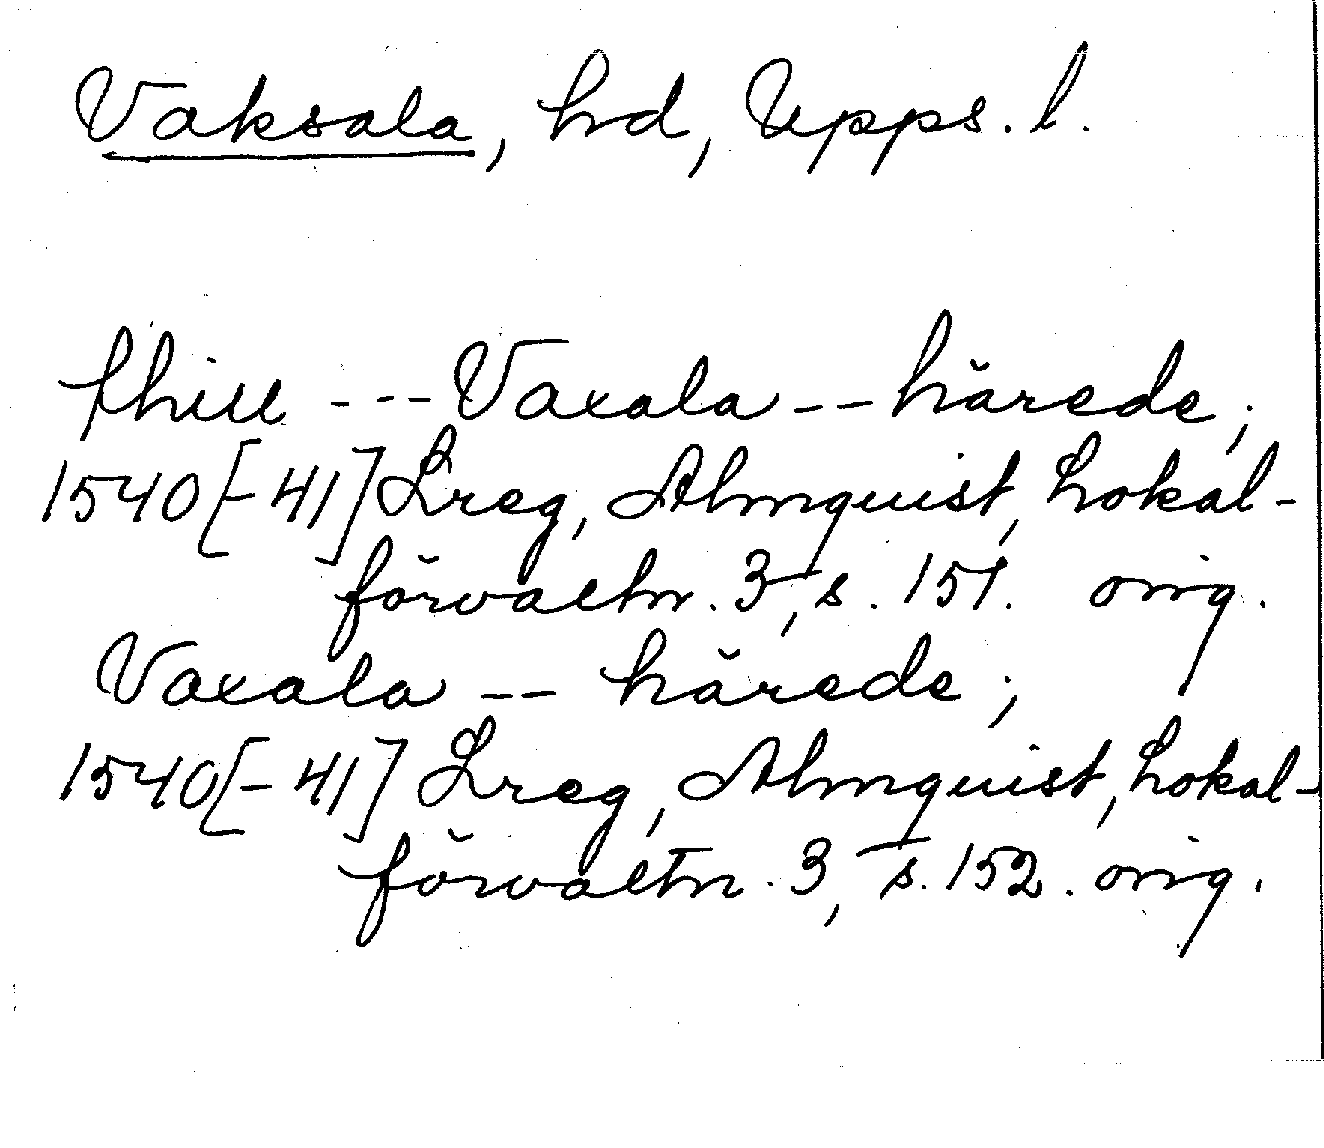 Vaksala, hd, Upps. l.
thill --- Vaxala -- härede;
1540[-41] Lreg, Almquist, Lokal-
förvaltn. 3, s. 151. orig.
Vaxala -- härede;
1540[-41] Lreg, Almquist, Lokal-
förvaltn. 3, s. 152. orig.